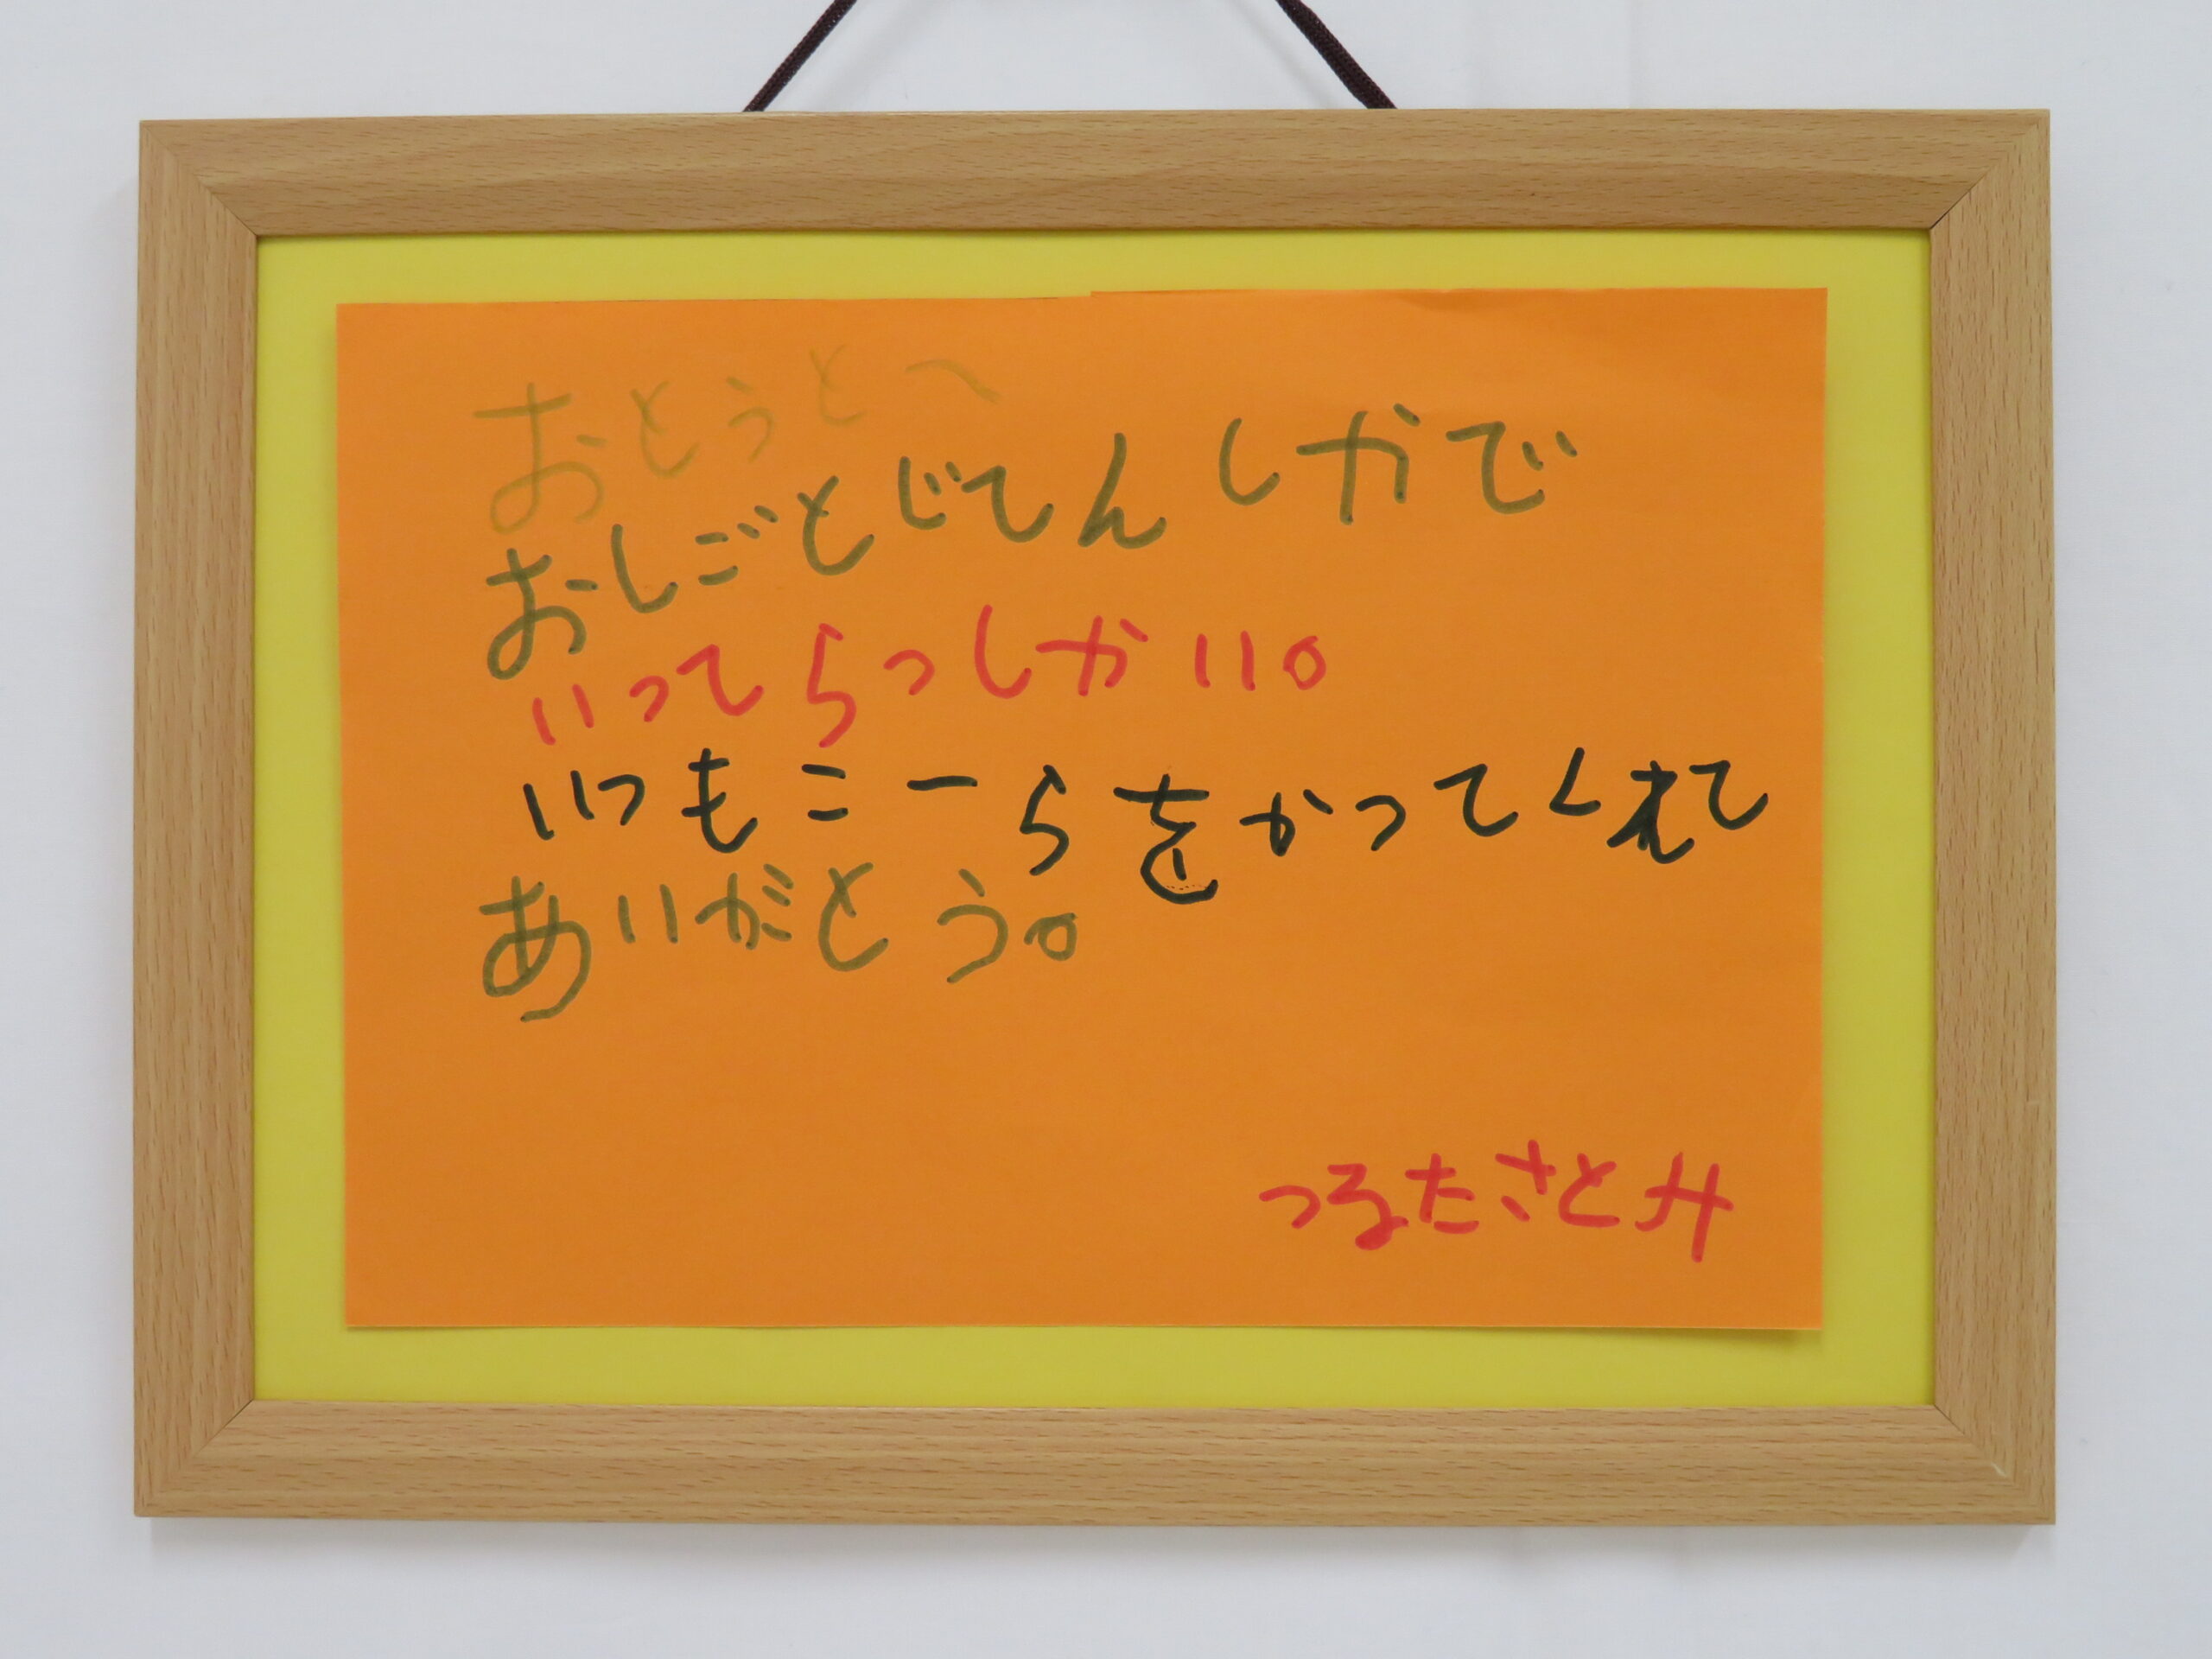 おとうとへ
おしごとじてんしかで
いってらっしかい。
いつもこーらをかってくれて
ありがとう。
つるたさとみ